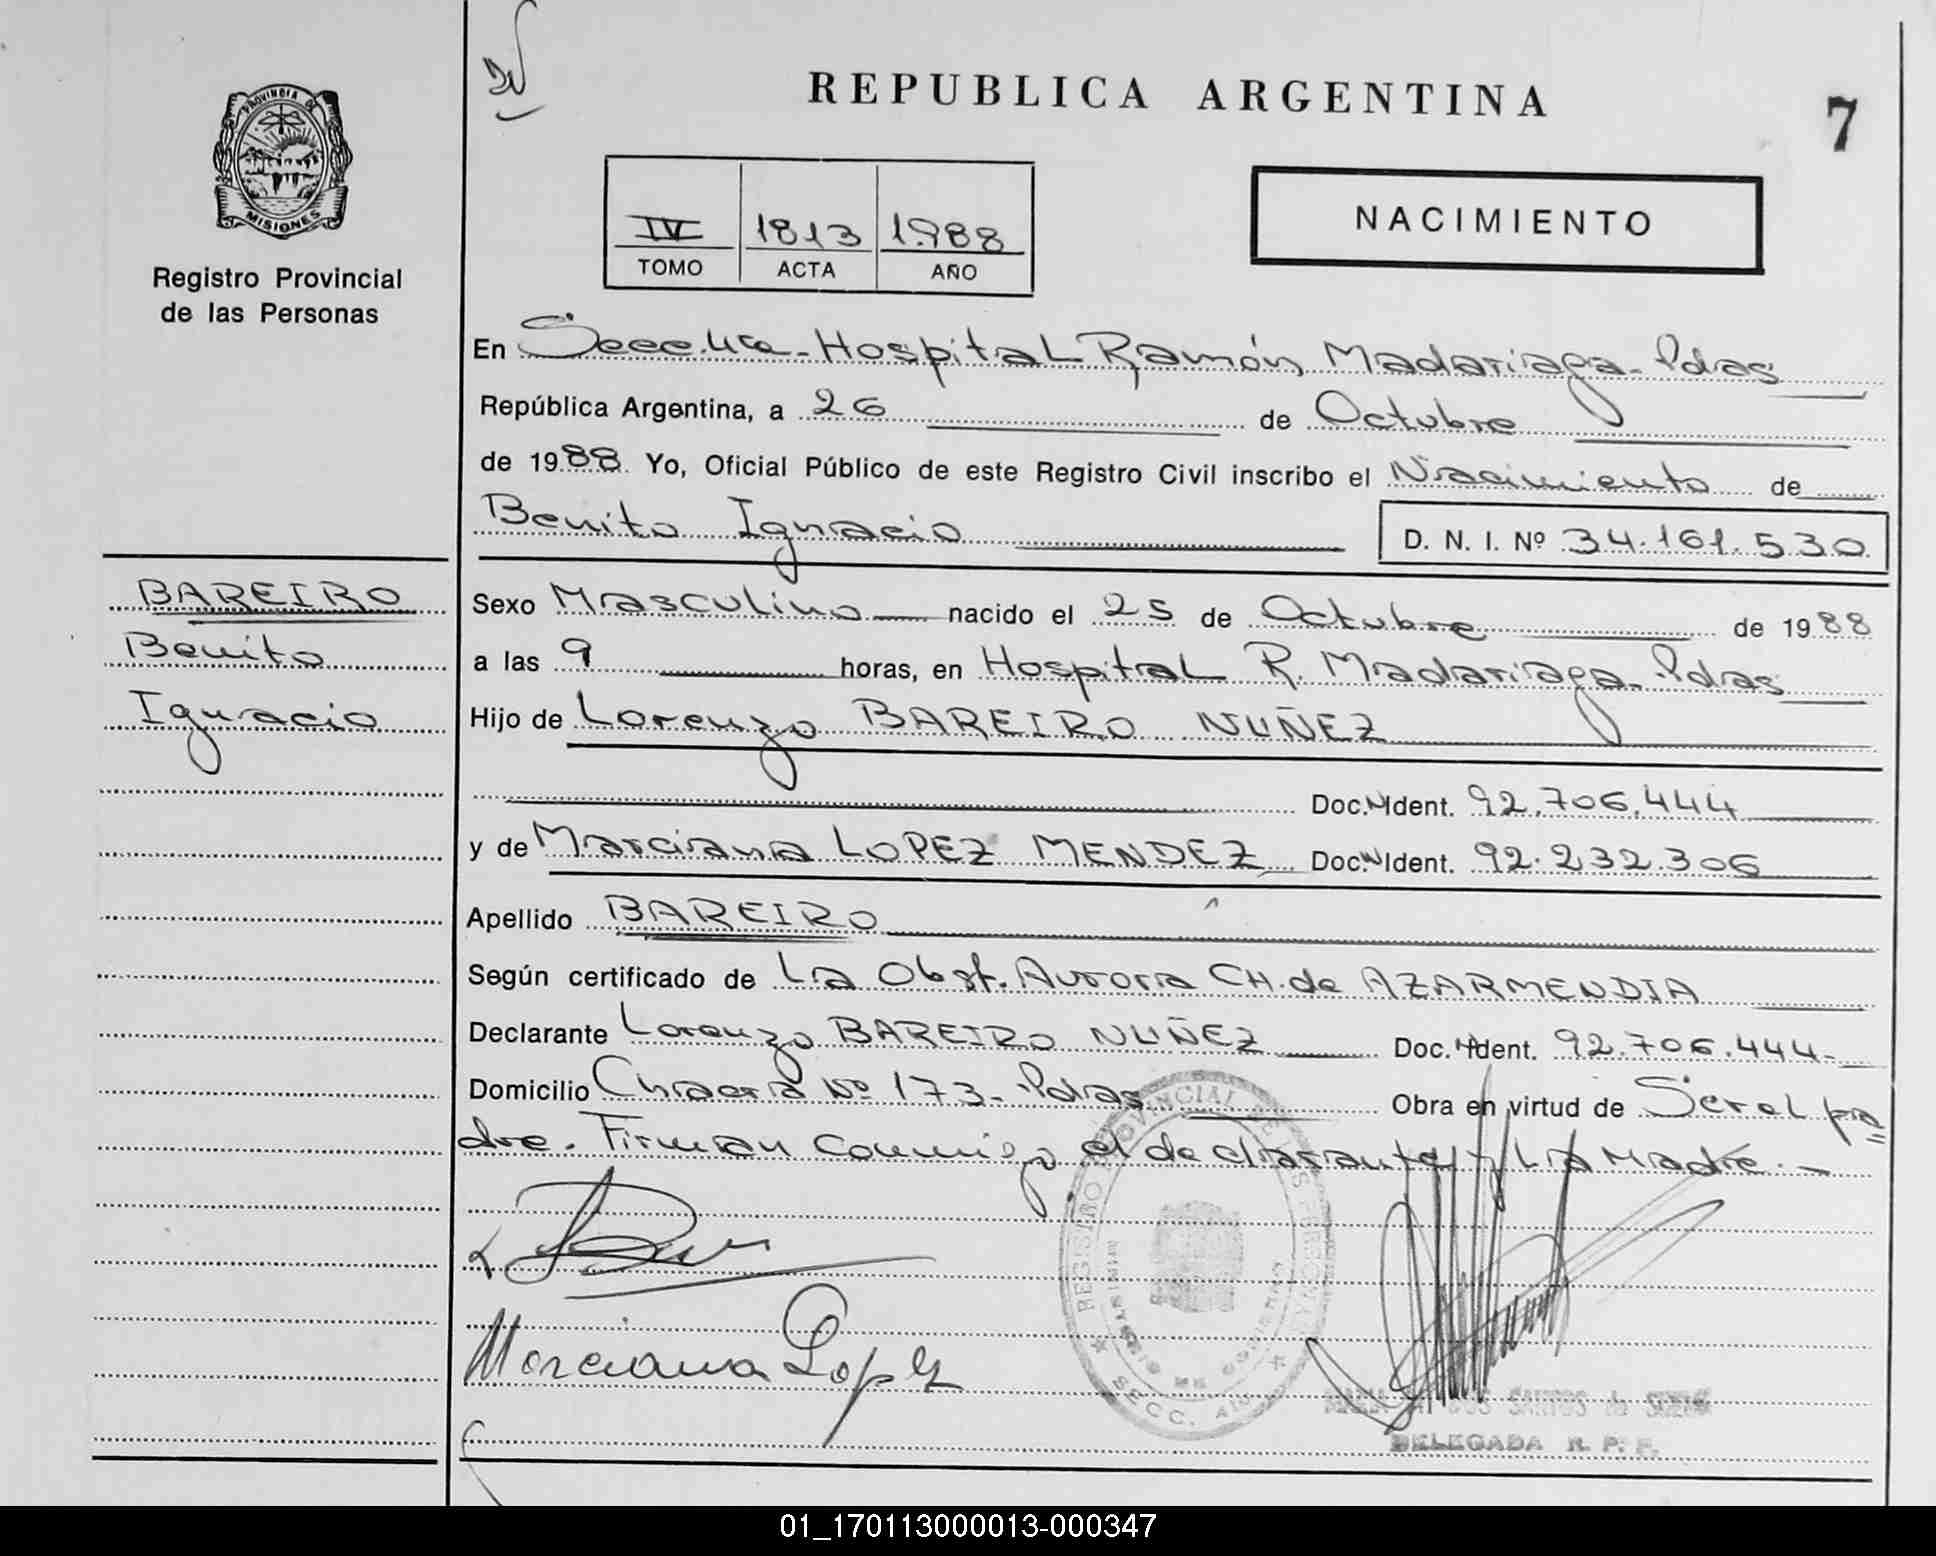 REPUBLICA ARGENTINA
7
PROVINCIA DE
MISIONES
Registro Provincial
de las Personas
IV 1813 1.988
TOMO ACTA AÑO
NACIMIENTO
En Secc. 4ta - Hospital Ramón Madariaga - Pdas
República Argentina, a 26 de Octubre
de 1988 Yo, Oficial Público de este Registro Civil inscribo el Nacimiento de
Benito Ignacio D. N. I. Nº 34.161.530
BAREIRO
Benito
Ignacio
Sexo Masculino nacido el 25 de Octubre de 1988
a las 9 horas, en Hospital R. Madariaga - Pdas
Hijo de Lorenzo BAREIRO NUÑEZ
Doc. Ident. 92.706.444
y de Marciana LOPEZ MENDEZ Doc. Ident. 92.232.306
Apellido BAREIRO
Según certificado de La Obst. Aurora CH. de AZARMENDIA
Declarante Lorenzo BAREIRO NUÑEZ Doc. Ident. 92.706.444-
Domicilio Chacra Nº 173 - Pdas Obra en virtud de Ser el pa=
dre. Firman conmigo el declarante y La Madre. -
Marciana Lopez
REGISTRO PROVINCIAL DE LAS PERSONAS
SECC.
DOS SANTOS de
DELEGADA R. P. P.
01_170113000013-000347